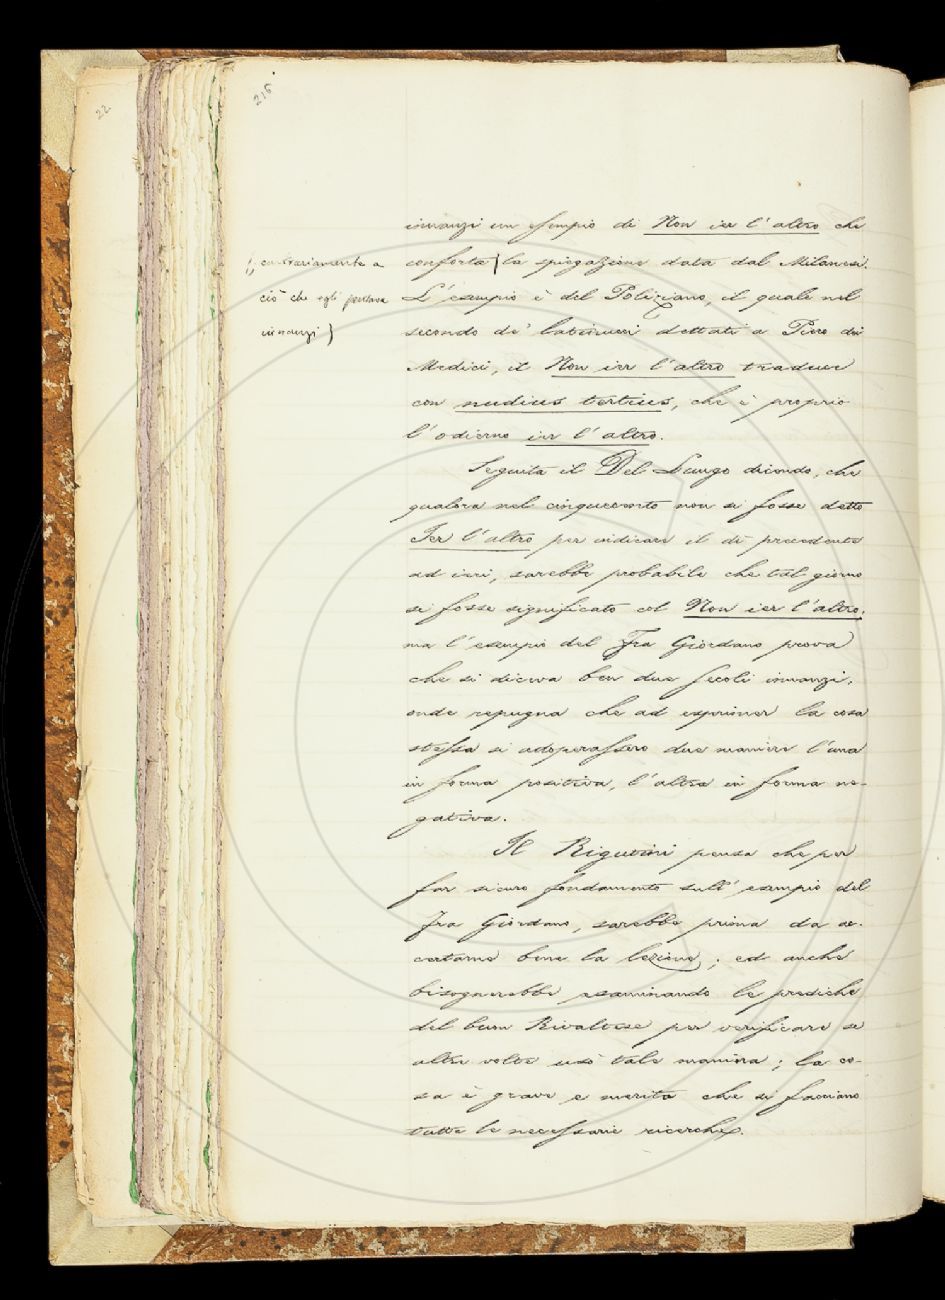 22
216
innanzi un esempio di Non ier l'altro che
conforta la spiegazione data dal Milanesi.
{ contrariamente a
ciò che egli pensava
innanzi }
L'esempio è del Poliziano, il quale nel
secondo de' latinucci dettati a Piero dei
Medici, il Non ier l'altro traduce
con nudius tertius, che è proprio
l'odierno ier l'altro.
Seguita il Del Lungo dicendo, che
qualora nel cinquecento non si fosse detto
Ier l'altro per indicare il dì precedente
ad ieri, sarebbe probabile che tal giorno
si fosse significato col Non ier l'altro;
ma l'esempio del Fra Giordano prova
che si diceva ben due secoli innanzi;
onde repugna che ad esprimer la cosa
stessa si adoperassero due maniere l'una
in forma positiva, l'altra in forma ne-
gativa.
Il Rigutini pensa che per
far sicuro fondamento sull'esempio del
Fra Giordano, sarebbe prima da ac-
certarne bene la lezione; ed anche
bisognerebbe esaminando le prediche
del buon Rivaltese per verificare se
altre volte usò tale maniera; la co-
sa è grave e merita che si facciano
tutte le necessarie ricerche.